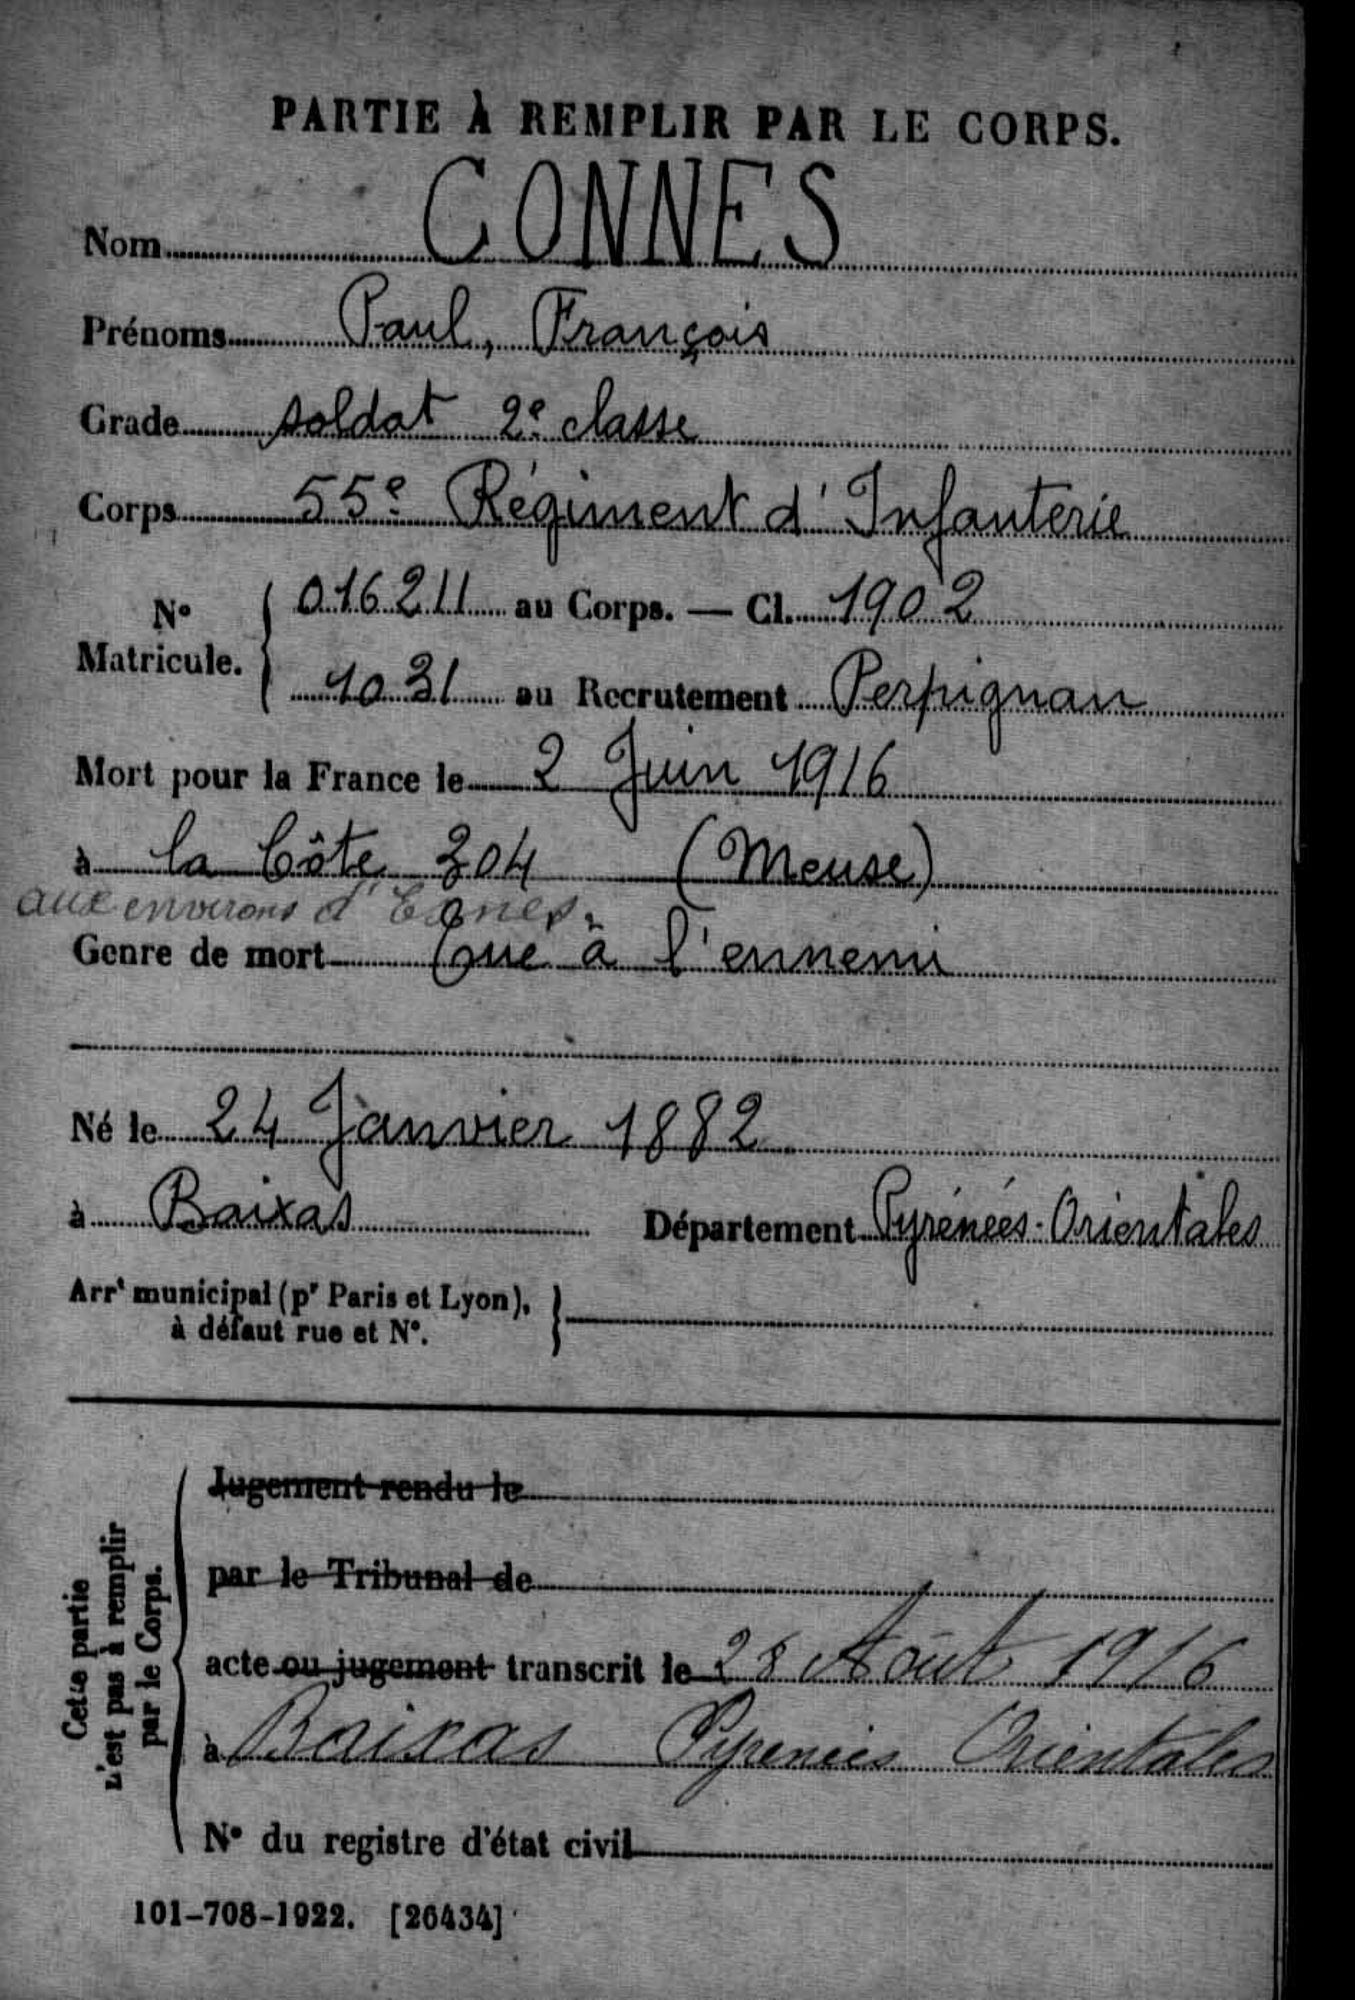 PARTIE À REMPLIR PAR LE CORPS.
Nom CONNES
Prénoms Paul, François
Grade soldat 2e classe
Corps 55e Régiment d'Infanterie
No Matricule. { 016211 au Corps. — Cl. 1902
1031 au Recrutement Perpignan
Mort pour la France le 2 Juin 1916
à la Côte 304 (Meuse)
aux environs d'Esnes.
Genre de mort Tué à l'ennemi
Né le 24 Janvier 1882
à Baixas Département Pyrénées-Orientales
Arrt municipal (pr Paris et Lyon), à défaut rue et No. }
Cette partie
n'est pas à remplir
par le Corps.
Jugement rendu le
par le Tribunal de
acte ou jugement transcrit le 28 Août 1916
à Baixas Pyrénées Orientales
No du registre d'état civil
101-708-1922. [26434]